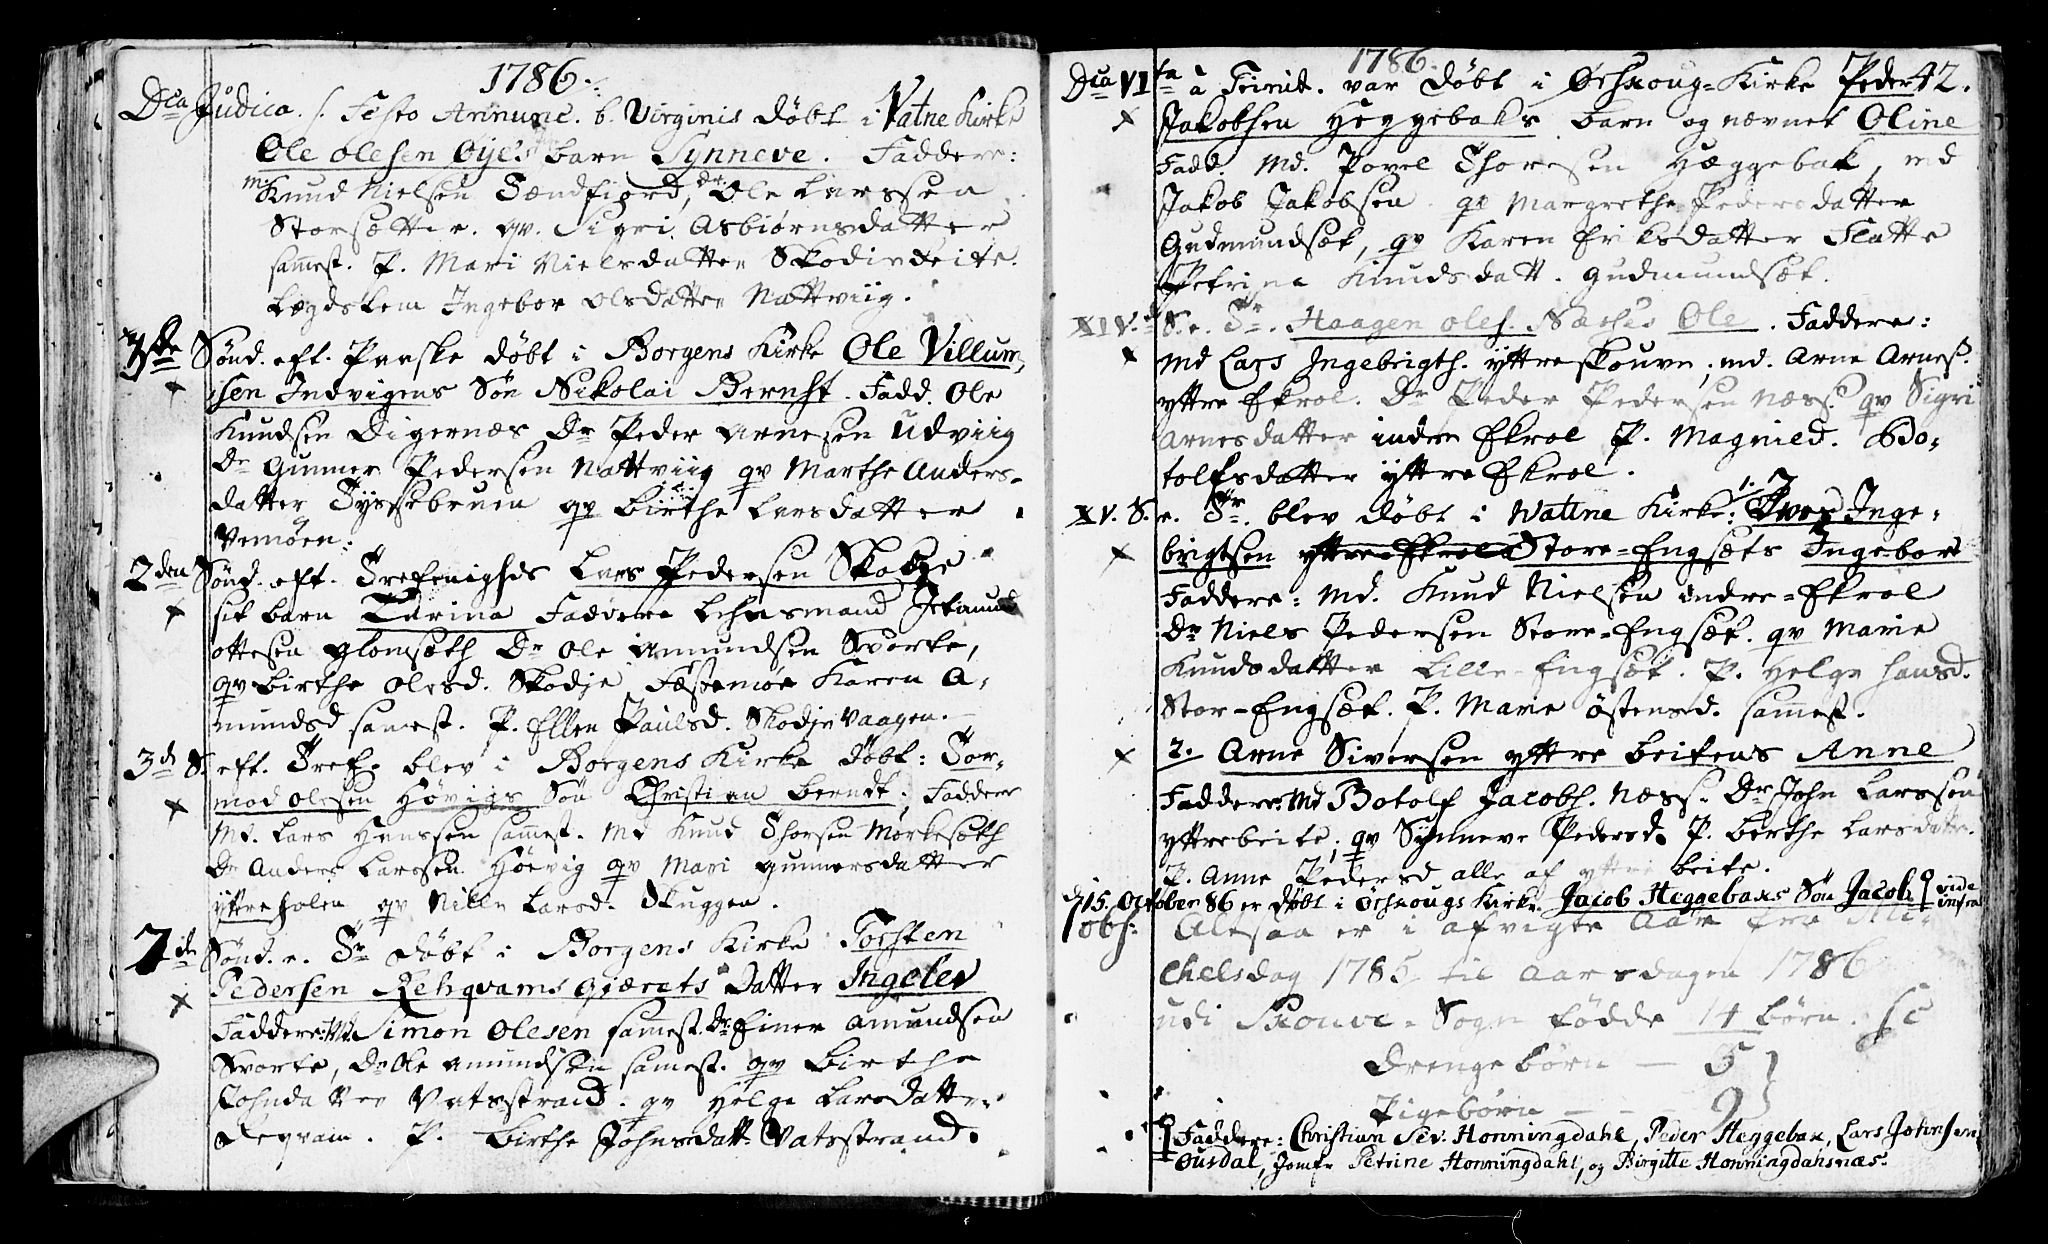 1786.
Dca Judica. s. Festo Annunc. b. Virginis døbt i Vatne Kirke
Ole olesen Øyes barn Synneve. Faddere:
m. Knud Nielsen Søndfiord, Dr Ole Larssen
Storsætter. qv. Sigri Asbiørnsdatter
samest. P. Mari Nielsdatter Skodi
Ingebor olsdatter Nattviig.
3de Sønd. eft. Paaske døbt i Borgens Kirke Ole Villum,
sen Indvigens Søn Nikolai Bernt. Fadd. Ole
Knudsen Digernæs Dr Peder Arnesen Udviig
Dr Gunner Pedersen Nattviig qv Marthe Anders-
datter Tyssebruen qv birthe Larsdatter
Vemøen:
2den Sønd. eft. Trefenigheds Lars Pedersen Skodje
sit barn Karina Faddere Lehnsmand Jetmund
ottesen Glomsæth Dr Ole Amundsen Svorte,
qv birthe olesd. Skodje Festemøe Karen A-
mundsd samest. P. Ellen Paulsd. Skodje Vaagen.
3d S. eft. Tref. blev i Borgens Kirke døbt: Tor-
mod olesen Høvigs Søn Christian berndt. Faddere
Md. Lars Hanssen samest. Md Knud Thorsen Mørkesæth
Dr Anders Larssen Høevig qv Mari gunnersdatter
yttre Holen qv Nille Larsd. Skuggen.
7de Sønd. e. Tr døbt i Borgens Kirke Torsten
Pedersen Rehqvams Giærets datter Ingelev
Faddere: Md. Simon Olesen samest. Dr Einer Amundsen
Svorte, Dr Ole Amundsen samest. qv birthe
Johnsdatter Vatsstrand. qv Helge Larsdatter
Reqvam. P. birthe Johnsdatt. Vatsstrand.
1786.
42.
Dca VI ta a Trinit. var døbt i Ørschoug-Kirke Peder
Jakobsen Heggebaks barn og nævnet Oline
Fadd. Md. Povel Thoresen Hæggebak, md
Jakob Jakobsen. qv Margrethe Pedersdatter
Gudmundsæt, qv Karen Eriksdatter Flatte
Petrina Knudsdatt. Gudmundsæt.
XIV. S. e. Tr. Haagen oles. Næsses Ole. Faddere:
Md Lars Ingebrigth. yttreskouve, md. Arne Arnes.
yttre Ekrol. Dr Peder Pedersen Næss. qv Sigri
Arnesdatter indre Ekrol P. Magnild. Bo-
tolfsdatter yttre Ekrol.
XV. S. e. Tr. blev døbt i Watne Kirke: 1. Iver Inge-
brigtsen yttre-Ekrols Store-Engsæts Ingebor
Faddere: Md. Knud Nielsen indre-Ekrol
Dr Niels Pedersen Store-Engsæt. qv Marie
Knudsdatter Lille-Engsæt. P. Helge Hansd.
Stor-Engsæt. P. Marie Østensd. samest.
2. Arne Siversen yttre beitens Anne
Faddere: Md Botolf Jacobs. Næss. Dr John Larssen
yttrebeite; qv Synneve Pedersd. P. berthe Larsdatter.
P. Anne Pedersd alle af yttre beite.
d. 15. October 86 er døbt i Ørschougs Kirke Jacob Heggebaks Søn Jacob vide infra
obs: Alesaa er i afvigte Aar fra Mi-
chelsdag 1785 til Aarsdagen 1786
udi Skouve-Sogn fødde 14 børn. sc
Drengebørn — 5
Pigebørn — — 9
Faddere: Christian Sev. Honningdahl, Peder Heggebak, Lars Johnsen
Ousdal, Jomfr Petrine Honningdahl, og Birgitte Honningdahsnæs.